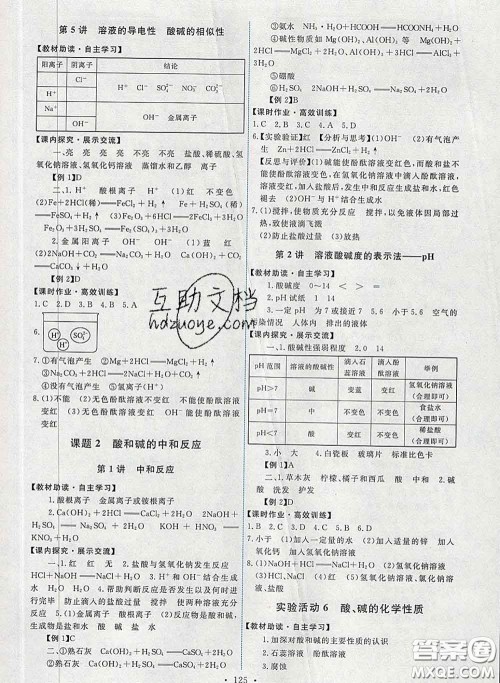 第5讲 溶液的导电性 酸碱的相似性
【教材助读·自主学习】
阳离子 阴离子 结论
H⁺ Cl⁻ H⁺ Cl⁻ SO₄²⁻ NO₃⁻ CO₃²⁻
Na⁺
OH⁻ 金属离子
【课内探究·展示交流】
一、亮 亮 亮 不亮 不亮 盐酸、稀硫酸、氢氧化钠溶液、氢氧化钙溶液 蒸馏水和乙醇 离子
【例 1】D
二、1.H⁺ 酸根离子 H⁺ (1)红 不变色
(2)Fe+2HCl(稀)══FeCl₂+H₂↑ Fe+H₂SO₄(稀)══
FeSO₄+H₂↑ (3)Fe₂O₃+6HCl══2FeCl₃+3H₂O
Fe₂O₃+3H₂SO₄══Fe₂(SO₄)₃+3H₂O
2.金属阳离子 OH⁻ OH⁻ (1)蓝 红
(2)Ca(OH)₂+CO₂══CaCO₃↓+H₂O
【例 2】D
【课时作业·高效训练】
1.C 2.B 3.B 4.B 5.A
H⁺ SO₄²⁻ H⁺
6.
7.①有气泡产生 ②Mg+2HCl══MgCl₂+H₂↑
③Na₂CO₃+2HCl══2NaCl+CO₂↑+H₂O
④没有气泡产生 ⑤氢离子(H⁺)
8.(1)不能使无色酚酞溶液变红 不能使酚酞溶液变红
(2)H₂O、Na⁺ (3)无色酚酞溶液变红 OH⁻能使酚酞溶液变红
课题2 酸和碱的中和反应
第1讲 中和反应
【教材助读·自主学习】
1.酸根离子 金属离子或铵根离子
2.Ca(OH)₂+2HCl══CaCl₂+2H₂O 2NaOH+
H₂SO₄══Na₂SO₄+2H₂O KOH+HNO₃══
KNO₃+H₂O
【课内探究·展示交流】
一、1.红 红 无 2.盐酸与氢氧化钠发生反应
HCl+NaOH══NaCl+H₂O 3.H⁺和OH⁻结合生成
水 无 红 4.帮助判断反应是否发生以及何时进行完毕 防止滴入的盐酸过量 (1)Ca(OH)₂+2HCl══
CaCl₂+2H₂O (2)酸、碱 (3)相同点:反应物是酸和碱,生成物是盐和水 酸 碱 盐 水
【例 1】C
二、①熟石灰 Ca(OH)₂+H₂SO₄══CaSO₄+2H₂O
②熟石灰 Ca(OH)₂+H₂SO₄══CaSO₄+2H₂O
③氨水 ④NH₃·H₂O+H₂SO₄══(NH₄)₂SO₄+2H₂O
④碱性物质如Mg(OH)₂、Al(OH)₃等 Mg(OH)₂+
2HCl══MgCl₂+2H₂O Al(OH)₃+3HCl══AlCl₃+
3H₂O
⑤硼酸
⑥2NaOH+H₂SO₄══Na₂SO₄+2H₂O
【例 2】B
【课时作业·高效训练】
1.C 2.B 3.C 4.A 5.D
6.【实验验证】红 【分析与思考】(1)OH⁻ (2)有气泡产生 Zn+2HCl══ZnCl₂+H₂↑
【反思与评价】碱能使酚酞溶液变红色,而酸和盐不能使酚酞溶液变色,在氢氧化钠溶液中滴入酚酞溶液变红,加入盐酸后,发生中和反应生成盐和水,红色消失 H⁺与OH⁻结合生成水
7.(1)搅拌,使物质充分反应 搅拌,以免液体因局部过热,致使液滴飞溅
(2)防止盐酸过量 (3)
第2讲 溶液酸碱度的表示法——pH
【教材助读·自主学习】
1.酸碱度 0～14 > = <
2.pH试纸 1 14
3.一定pH 7 方法 接近7 5.6 小于5.6 空气的污染情况 人体内 排出的液体
【课内探究·展示交流】
一、1.酸碱性强弱程度 2.0 14
pH范围 溶液的酸碱性 滴入石蕊溶液 滴入酚酞溶液 举例
pH>7 碱 变蓝 变红 氢氧化钠溶液(合理即可)
pH=7 中 不变色 不变色 食盐水(合理即可)
pH<7 酸 变红 不变色 稀盐酸(合理即可)
3.小 大 4.白瓷板 玻璃片 标准比色卡
【例 1】A
二、1.草木灰 柠檬、橘子和西瓜 酸 中 2.碱
酸 洗发 护发
【例 2】A
【课时作业·高效训练】
1.B 2.C 3.D 4.B 5.D 6.D
7.小于 (1)加入一定量的水 (2)加入适量的锌 加入氧化钙 加入氢氧化钠溶液
8.(1)HCl+NaOH══NaCl+H₂O (2)氢氧化钠溶液
实验活动6 酸、碱的化学性质
【教材助读·自主学习】
1.加深对酸和碱的主要性质的认识
2.石蕊溶液 酚酞溶液
3.腐蚀
· 125 ·
互助文档
hdzuoye.com
答案圈
MXQE.COM